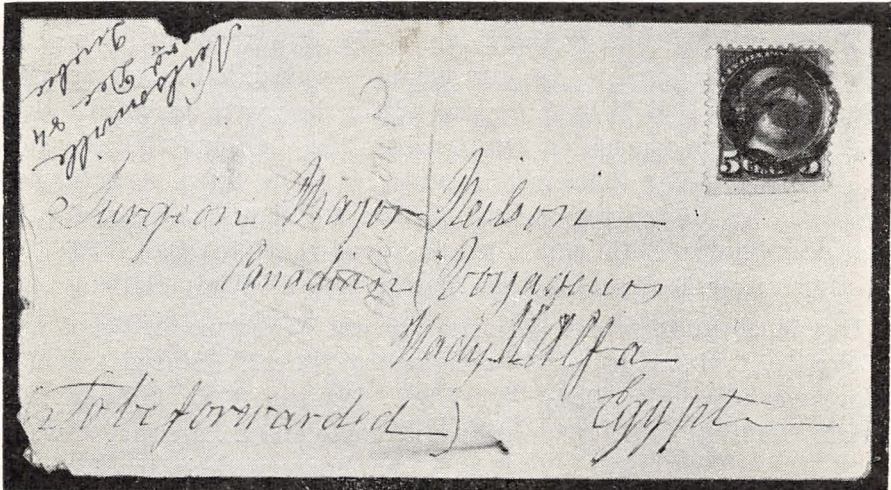 Neilsonville
Dec 84
Quebec
5 CENTS 5
Surgeon Major Neilson
Canadian Voyageurs
Wady Halfa
Egypt
(To be forwarded)